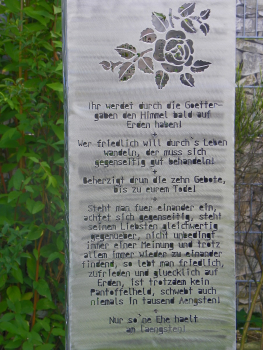 Ihr werdet durch die Goetter-
gaben den Himmel bald auf
Erden haben!
+
Wer friedlich will durch's Leben
wandeln, der muss sich
gegenseitig gut behandeln!
+
Beherzigt drum die zehn Gebote,
bis zu eurem Tode!
+
Steht man fuer einander ein,
achtet sich gegenseitig, steht
seinen Liebsten gleichwertig
gegenueber, nicht unbedingt
immer einer Meinung und trotz
allem immer wieder zu einander
findend, so lebt man friedlich,
zufrieden und gluecklich auf
Erden, ist trotzdem kein
Pantoffelheld, schwebt auch
niemals in tausend Aengsten!
+
Nur so'ne Ehe haelt
am laengsten!